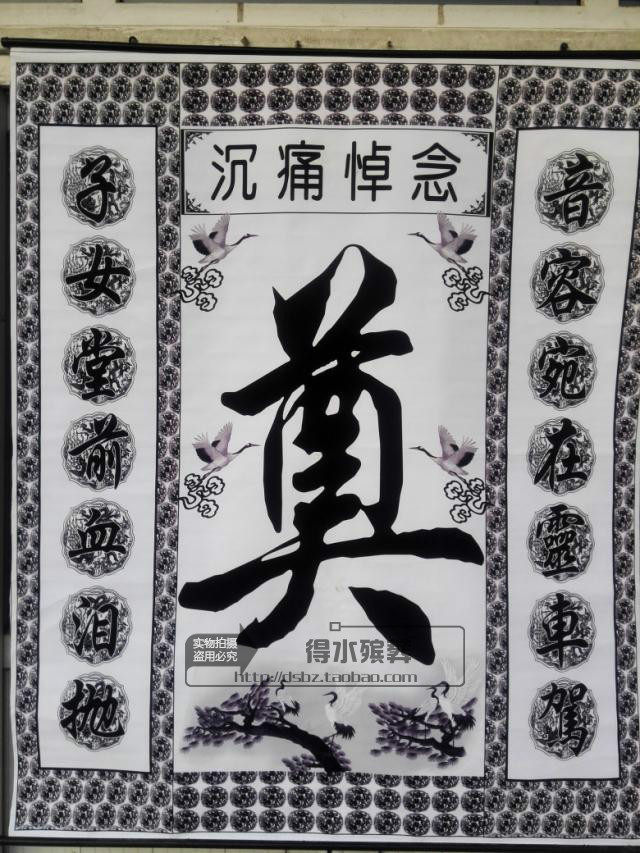 沉痛悼念
音容宛在靈車駕
奠
子女堂前血泪抛
实物拍摄
盗用必究
得水殡葬
http://dsbz.taobao.com